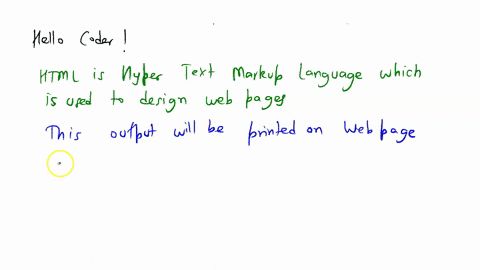 Hello Coder!
HTML is Hyper Text Markup Language which
is used to design web pages
This output will be printed on Web page